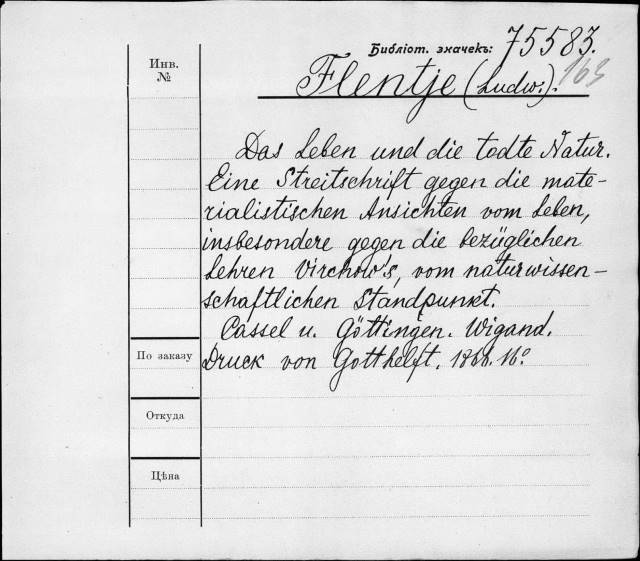 Библіот. значекъ: 75583.
163
Инв.
№
Flentje (Ludw.).
Das Leben und die todte Natur.
Eine Streitschrift gegen die mate-
rialistischen Ansichten vom Leben,
insbesondere gegen die bezüglichen
Lehren Virchow's, vom naturwissen-
schaftlichen Standpunkt.
Cassel u. Göttingen. Wigand.
Druck von Gotthelft. 1866. 16º
По заказу
Откуда
Цѣна